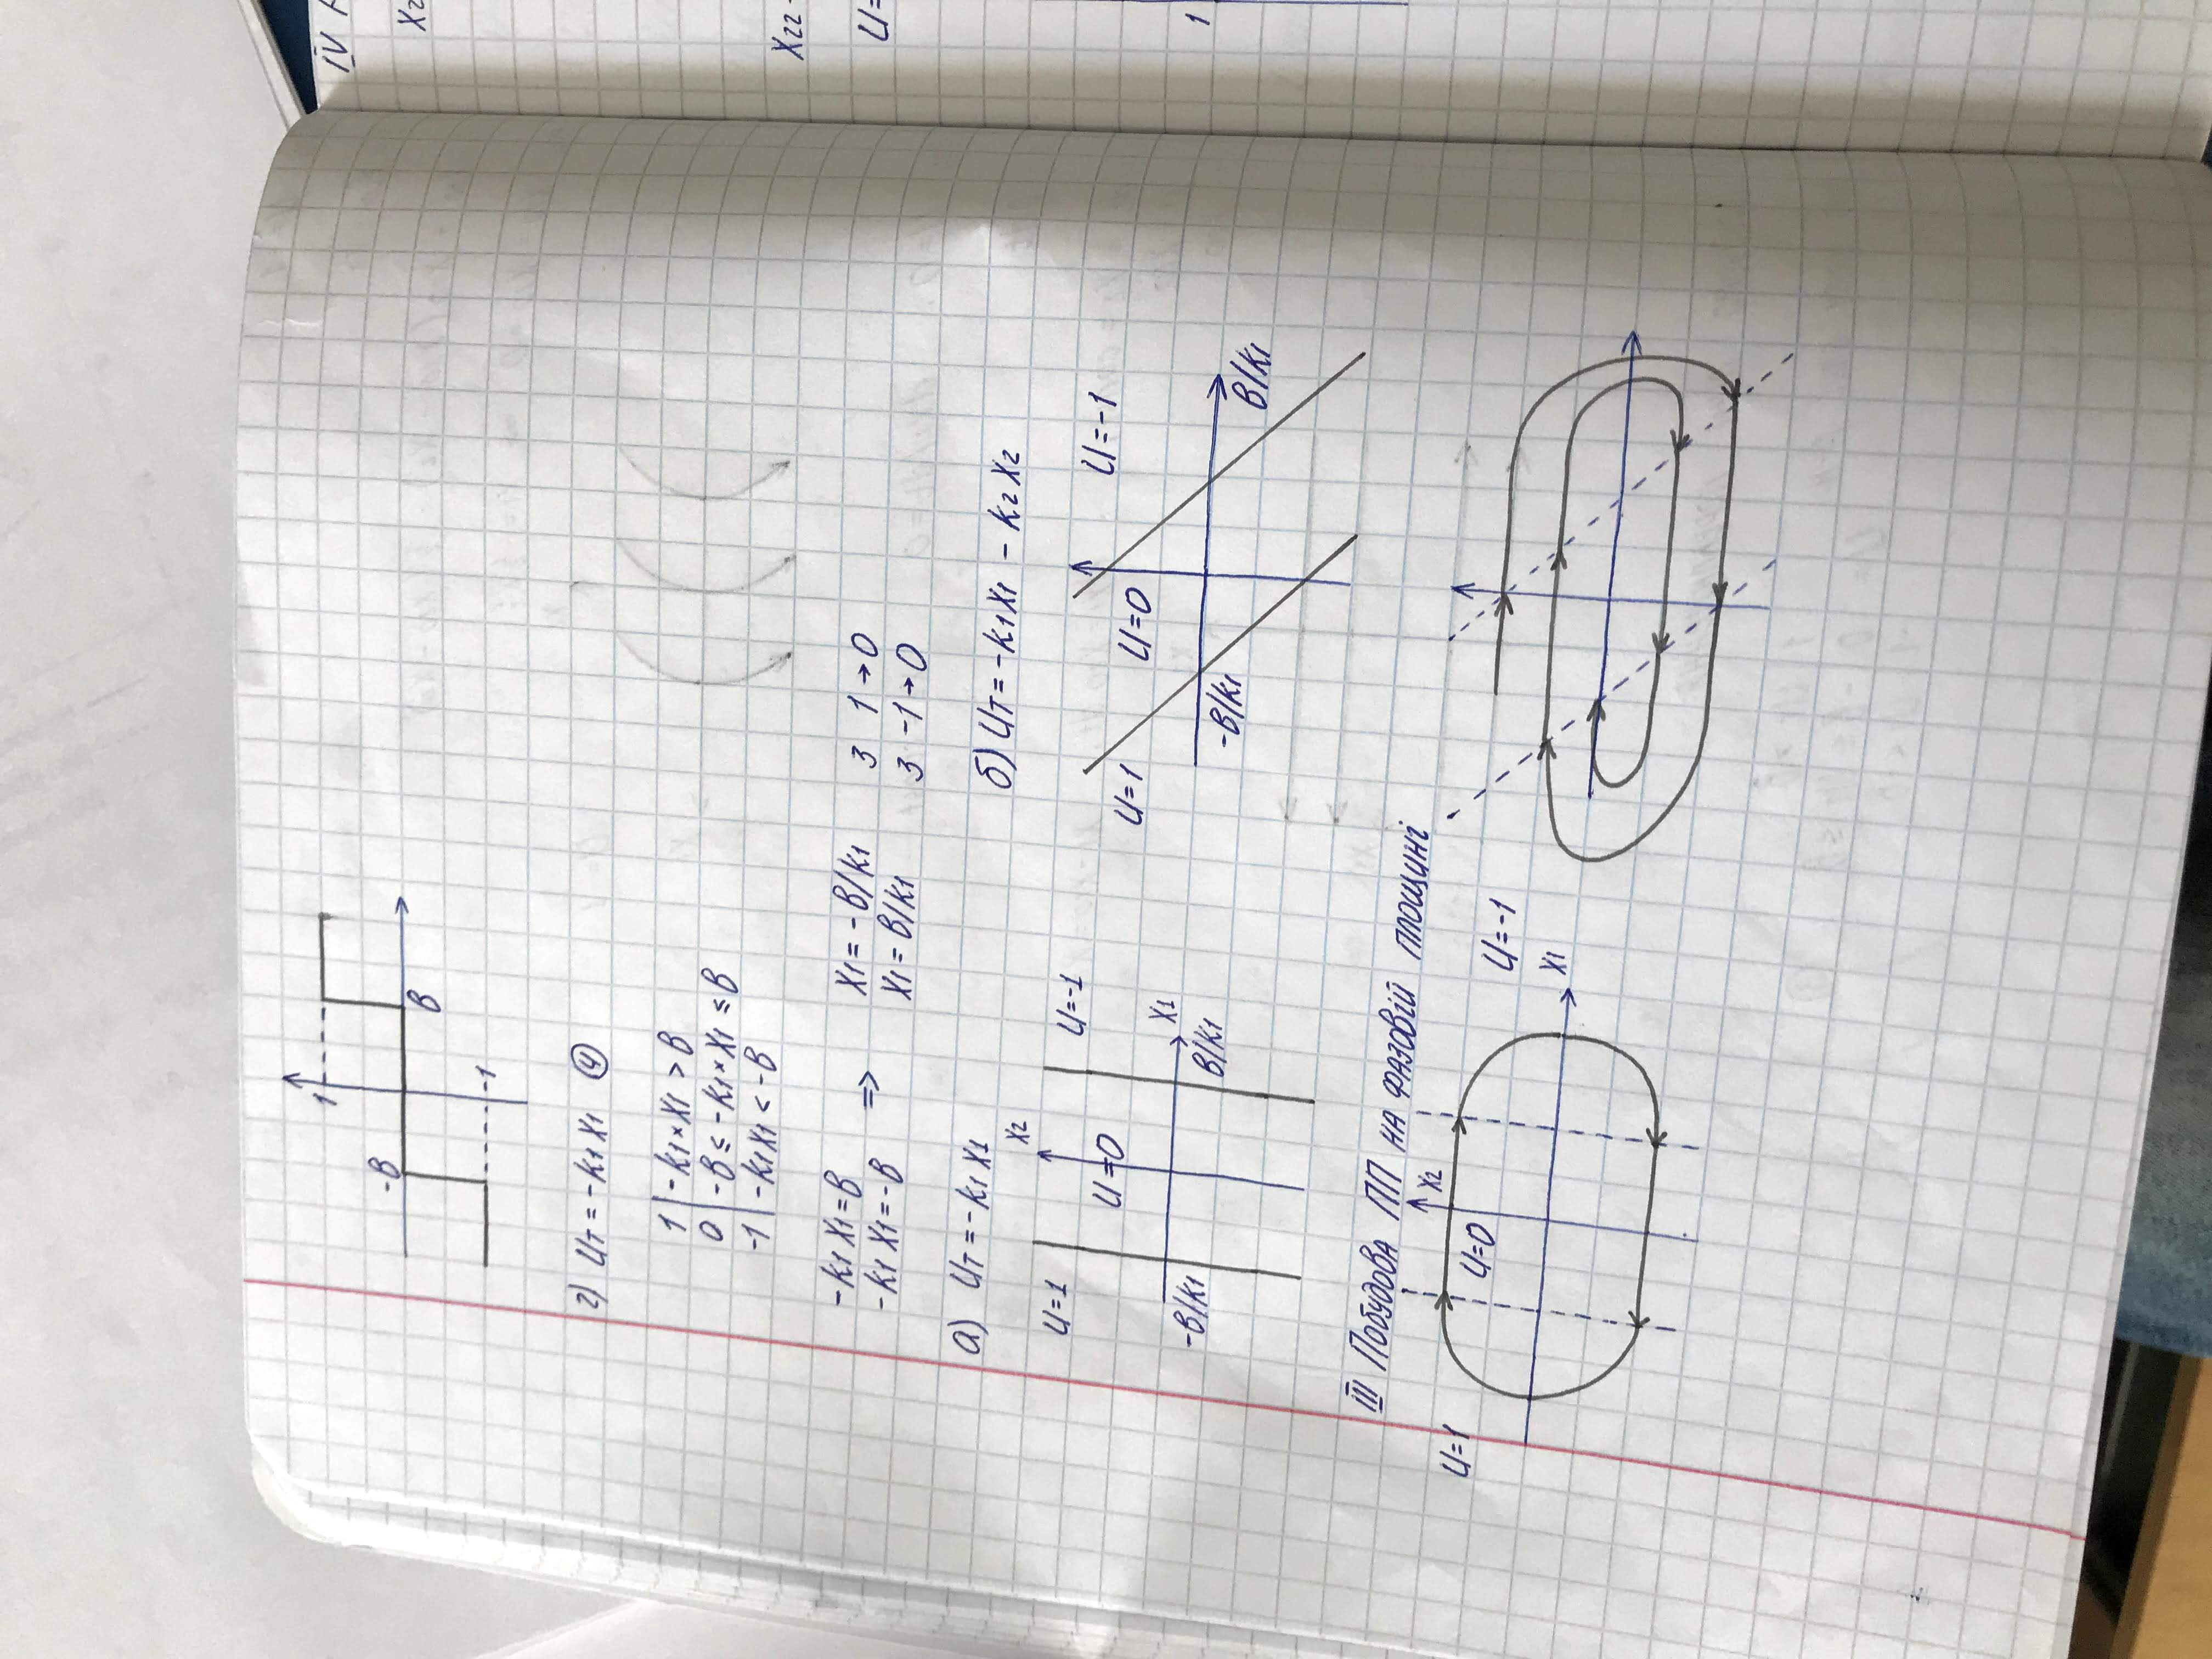 1
-B
B
-1
г) Uт = -K1 X1 (4)
1 | -K1 × X1 > B
0 | -B ≤ -K1 × X1 ≤ B
-1 | -K1 X1 < -B
-K1 X1 = B => X1 = -B/K1 з 1 → 0
-K1 X1 = -B X1 = B/K1 з -1 → 0
а) Uт = -K1 X1
X2
U=1
U=-1
U=0
X1
-B/K1
B/K1
б) Uт = -K1 X1 - K2 X2
U=1
U=0
U=-1
-B/K1
B/K1
III Побудова ПП на фазовій площині
X2
U=1
U=0
U=-1
X1
IV
X2
X22 -
U=
1